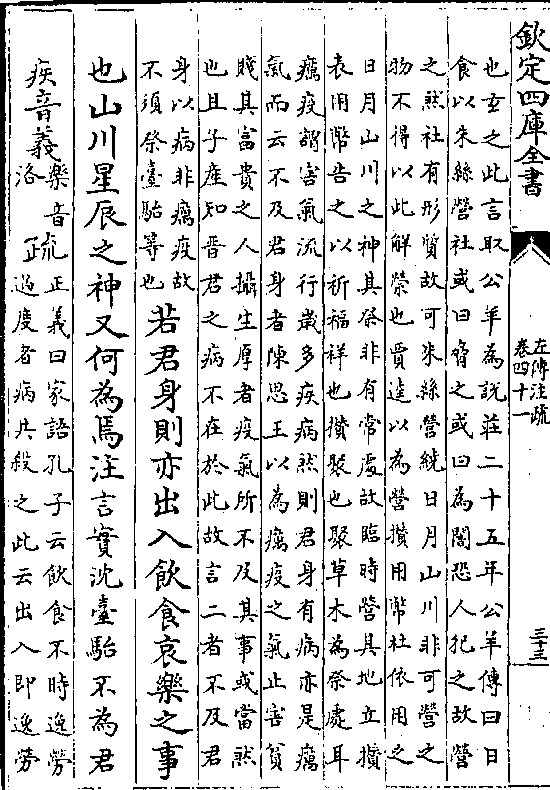 欽定四庫全書
左傳注疏
卷四十一
三十三
也玄之此言取公羊為說莊二十五年公羊傳曰日
食以朱絲營社或曰脅之或曰為闇恐人犯之故營
之然社有形質故可朱絲營繞日月山川非可營之
物不得以此解禜也賈逵以為營攢用幣杜依用之
日月山川之神其祭非有常處故臨時營其地立攢
表用幣告之以祈福祥也攢聚也聚草木為祭處耳
癘疫謂害氣流行歲多疾病然則君身有病亦是癘
氣而云不及君身者陳思王以為癘疫之氣止害貧
賤其富貴之人攝生厚者疫氣所不及其事或當然
也且子產知晉君之病不在於此故言二者不及君
身以病非癘疫故
不須祭臺駘等也
若君身則亦出入飲食哀樂之事
也山川星辰之神又何為焉注言實沈臺駘不為君
疾音義
樂音
洛
疏
正義曰家語孔子云飲食不時逸勞
過度者病共殺之此云出入即逸勞